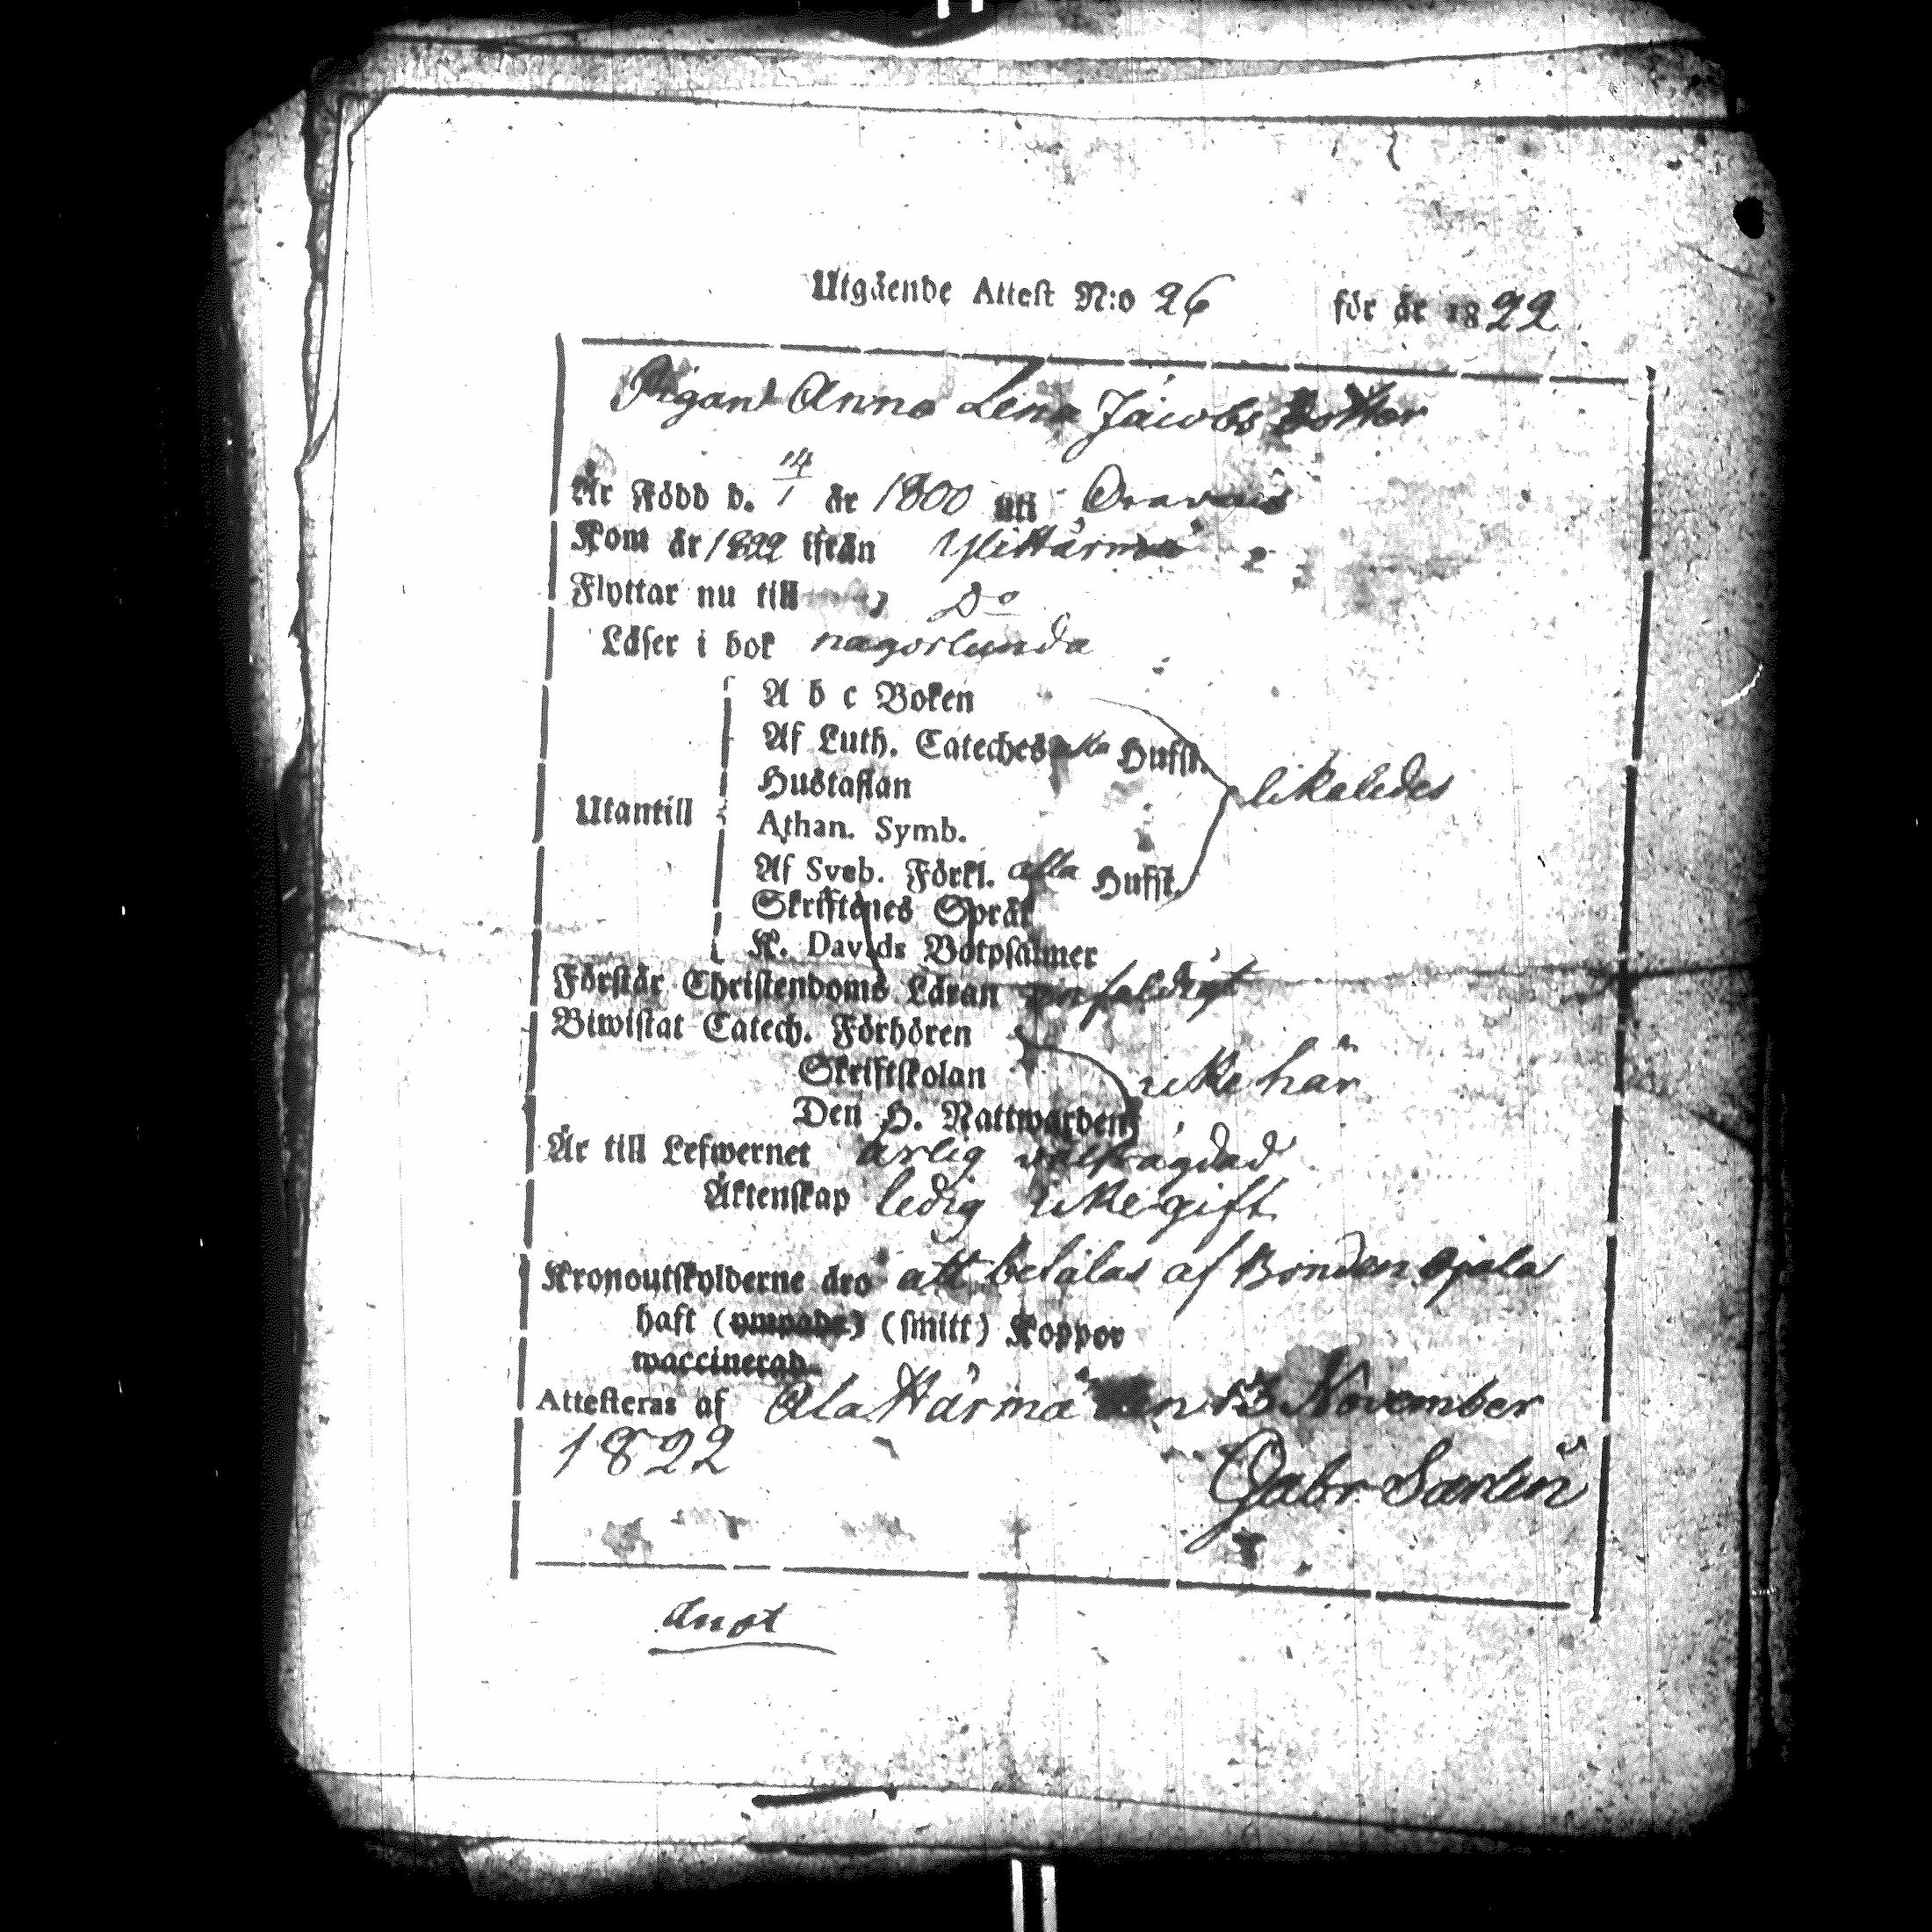 Utgående Attest N:o 26 för år 1822
Pigan Anna Lena Jacobs Dotter
Är Född d. 14/1 år 1800 uti Oravais
Kom år 1822 ifrån Ylihärmä
Flyttar nu till Do
Läser i bok någorlunda
A b c Boken
Af Luth. Cateches alla Hufst.
Hustaflan
Utantill
Athan. Symb.
likaledes
Af Sveb. Förkl. alla Hufst.
Skriftenes Språk
K. Davids Botpsalmer
Förstår Christendoms Läran enfaldigt
Biwistat Catech. Förhören
Skriftskolan
icke här
Den H. Nattwarden
Är till Lefwernet ärlig välfrägdad
Äktenskap ledig icke gift
Kronoutskylderne äro att betalas af Bonden
haft (ympade) (smitt) Koppor
waccinerad
Attesteras af Ala Härmä den 13 November
1822
Gabr